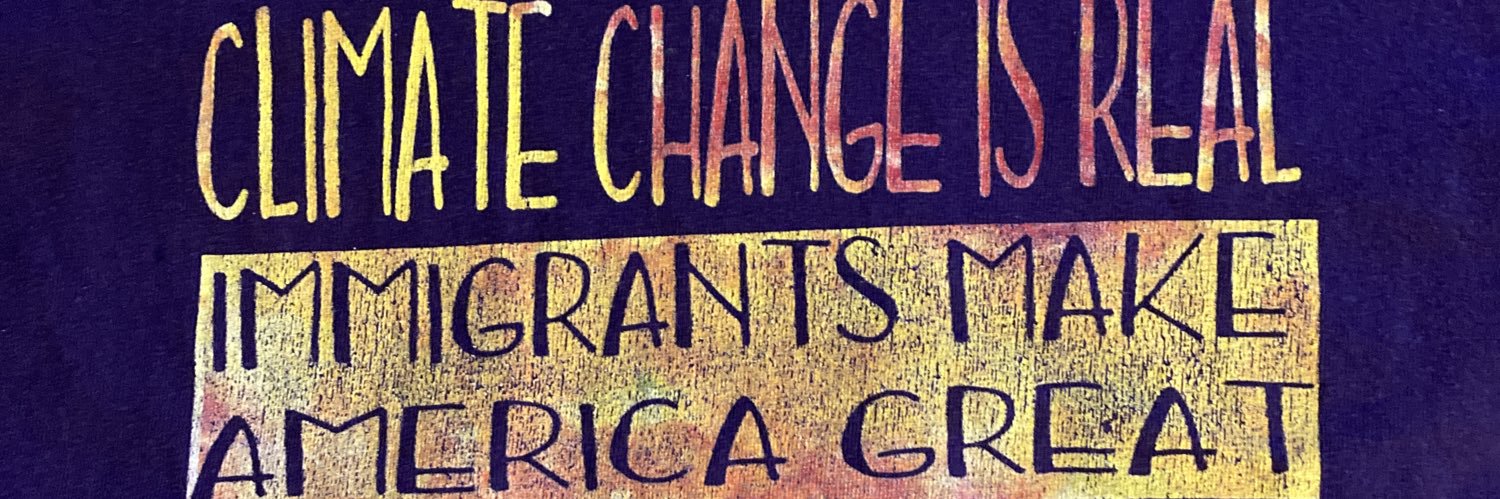 CLIMATE CHANGE IS REAL
IMMIGRANTS MAKE
AMERICA GREAT